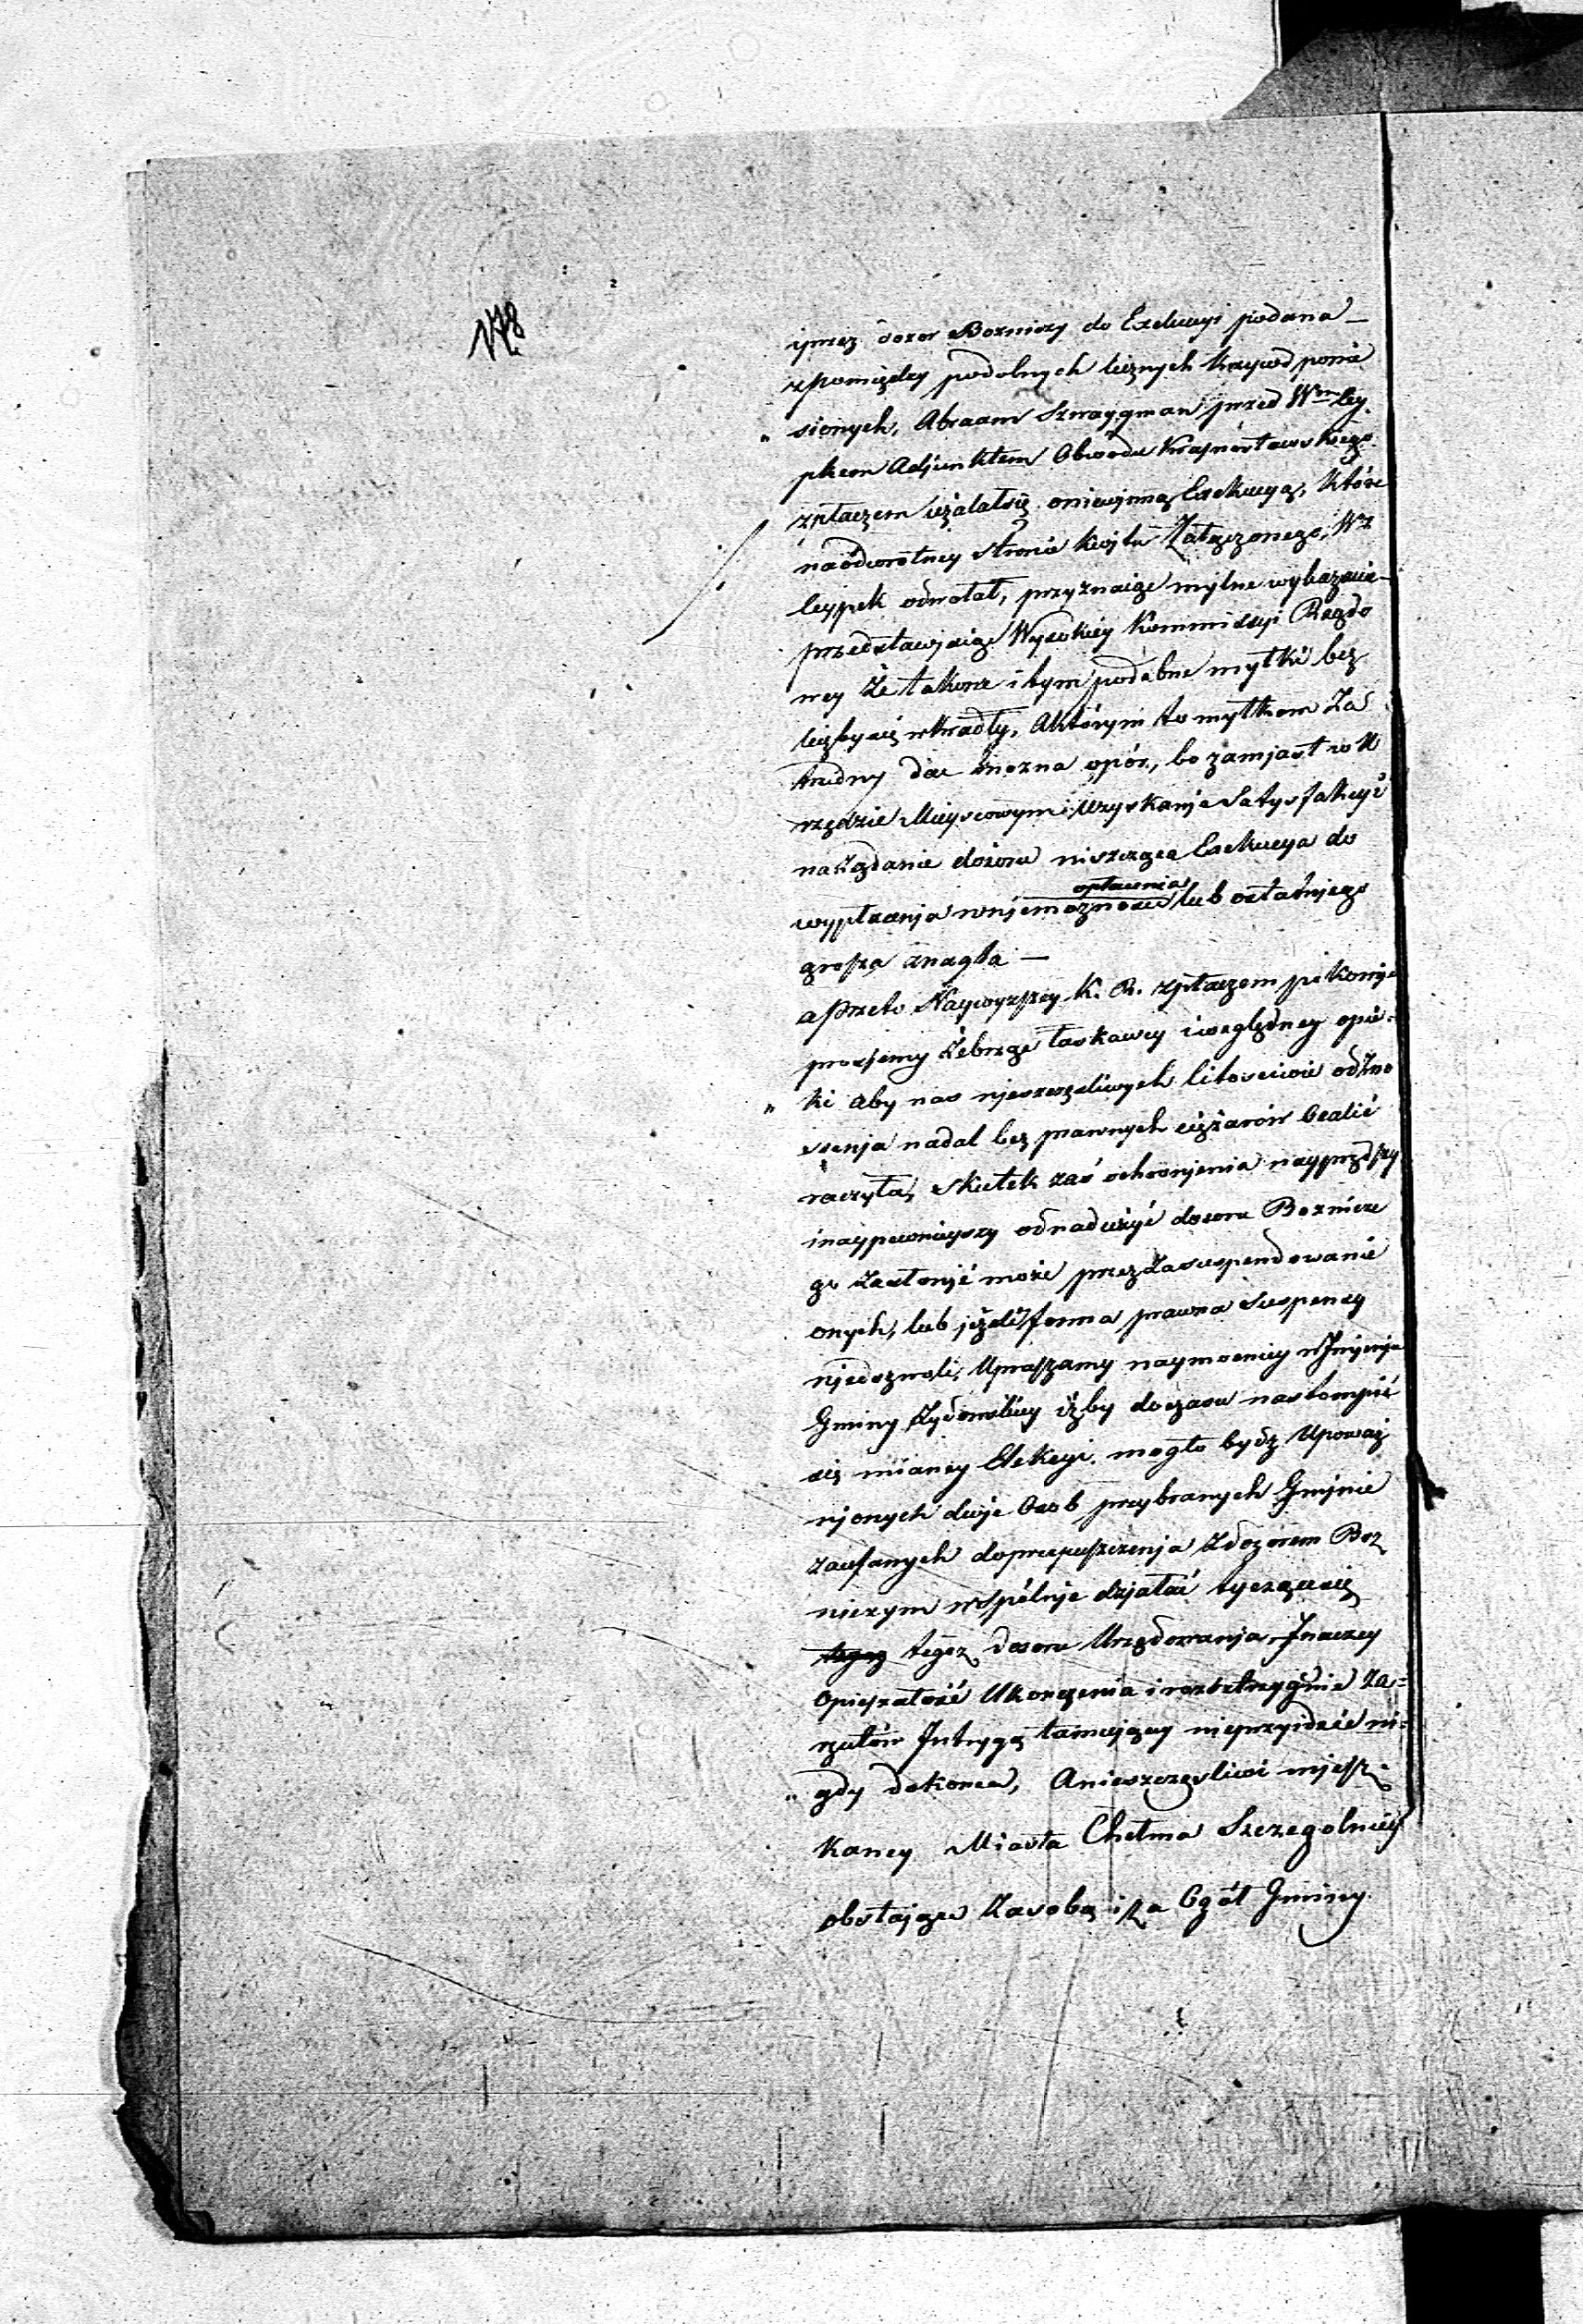 178
przez dozor Bozniczy do Exekucyi podana —
z pomiędzy podobnych licznych krzywd ponie
„ sionych, Abraam Szwaygman przed Wm Ley
pkem Adjunktem Obwodu Krasnostawskiego
z płaczem użalałsię o niewinną Exekucyą, które
na odwrotney stronie kwitu Załączonego, Wz
Leypek odnotał, przyznaiąc mylne wykazanie —
przedstawiaiąc Wysokiey Kommissyi Rządo
wey że takowe i tym podobne myłki bez
liczby się wkradły, a którym to myłkom Za
trudny dac można opór, bo zamjast w U
rzędzie Mieyscowym Uzyskanja Satysfakcyi
na żądanie dozoru niszcząca Exekucya do
wypłacenja w njemożności opłacenia lub ostatnjego
grosza znagła —
a przeto Naywyższey K. R. z płaczem po kornje
prosjemy żebrząc łaskawey i względney opie-
„ ki aby nas njeszczęśliwych litościwie od zno
szenja nadal bez prawnych ciężarów ocalić
raczyła, skutek zaś ochronjenia nayprędszy
i naypewnieyszy od nadużyć dozoru Boznicze
go zastonjć może przez Zasuspendowanie
onych, lub jeżeli forma prawna Suspensy
njedozwoli, Upraszamy naymocniey w Jmjenju
Gminy Żydowskiey iżby do czasu nastompić
się mianey Elekcyi mogło bydz Upoważ
njonych dwje Osob przybranych Gmjnie
zaufanych do przepuszczenja z dozorem Boz
niczym wspólnje dzjałać tyczące się
tegoż dozoru Urzędowanja Inaczey
Opieszałość Ukończenia i rozstrzygnie za=
rzutów Intrygą tamujący nieprzyidzie ni=
„ gdy do konca, A nieszczęsliwi mjesz=
kancy Miasta Chełma Szczegolniey
obstające Za sobą i za Ogół Gminy